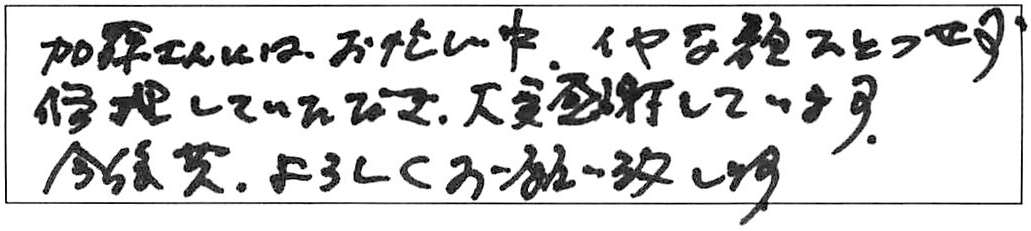 加藤さんには、お忙しい中、イヤな顔ひとつせず
修理していただき、大変感謝しています。
今後共、よろしくお願い致します